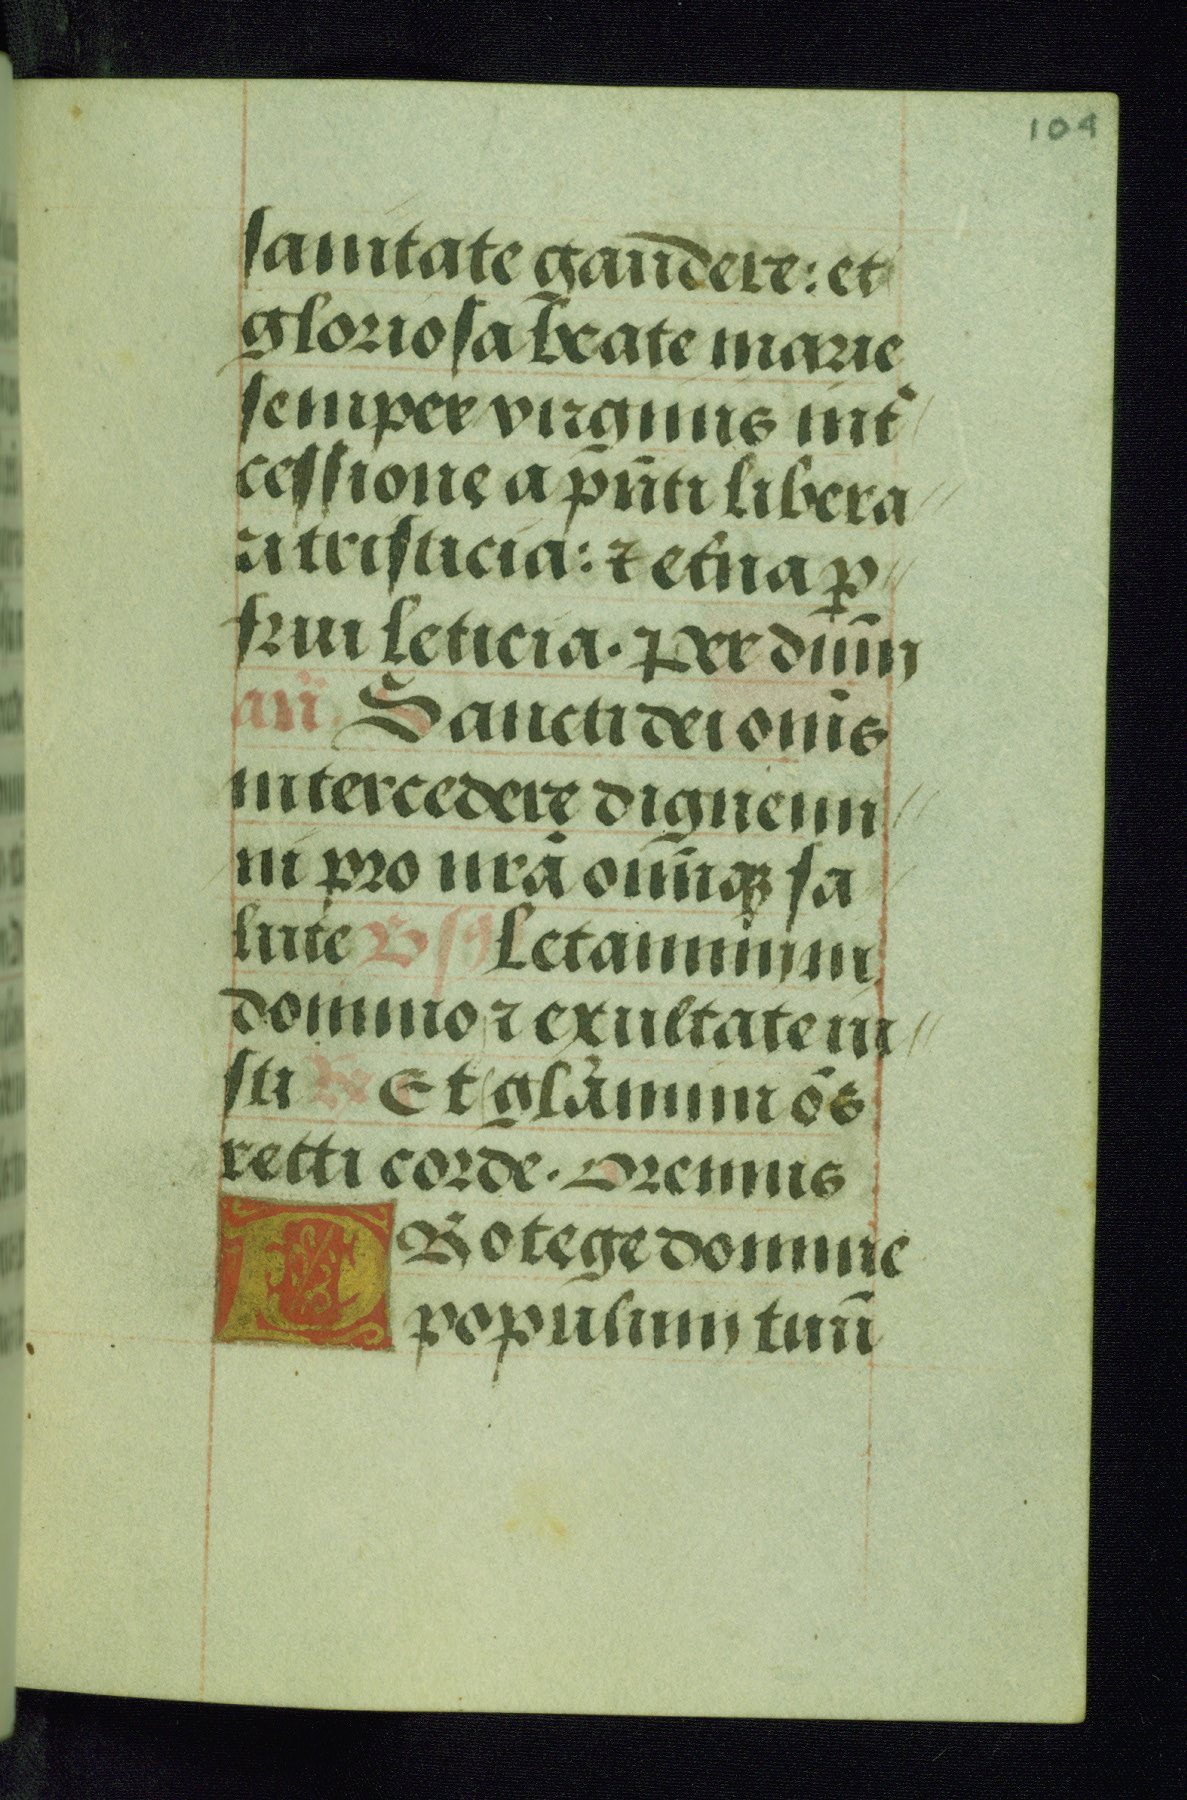 104
sanitate gaudere: et
gloriosa beate marie
semper virginis int̉
cessione a pn̄ti libera
ri tristicia: ⁊ et̉na ꝑ
frui leticia. Per dn̄m
an̄. Sancti dei om̄s
intercedere dignemi
ni pro nr̄a omn̄iqꝫ sa
lute v̉sꝯ Letamini in
domino ⁊ exultate iu
sti ℟ Et glāmini om̄s
recti corde. Oremus
PRotege domine
populum tuū